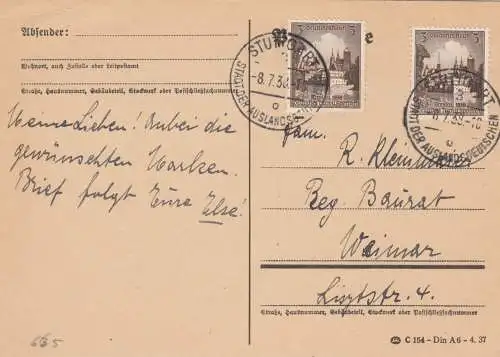 Absender:
Wohnort, auch Zustell- oder Leitpostamt
Straße, Hausnummer, Gebäudeteil, Stockwerk oder Postschließfachnummer
Meine Lieben! Anbei die
gewünschten Marken.
Brief folgt Eure Else!
665
STUTTGART
-8.7.38
STADT DER AUSLANDSDEUTSCHEN
3 Deutsches Reich 3
STUTTGART
8.7.38-18
STADT DER AUSLANDSDEUTSCHEN
Fam.
R.
Reg. Baurat
Weimar
Lisztstr. 4.
Straße, Hausnummer, Gebäudeteil, Stockwerk oder Postschließfachnummer
C 154 - Din A6 - 4. 37